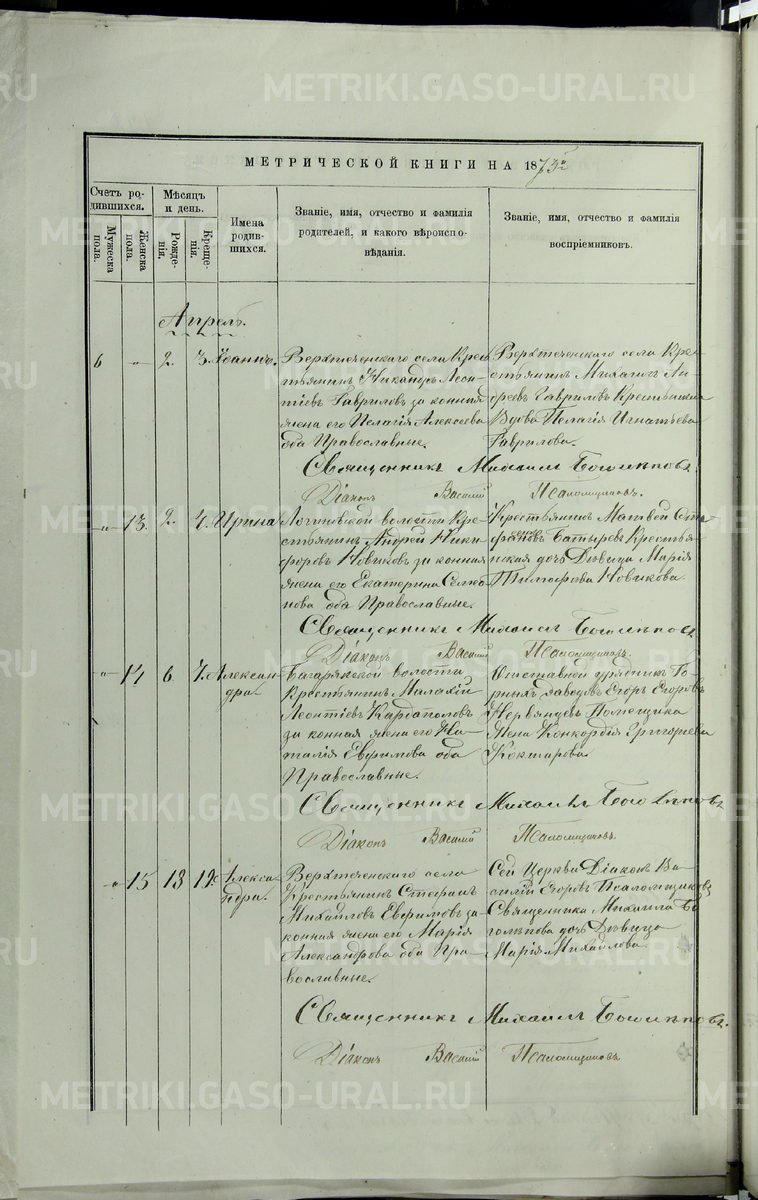 МЕТРИЧЕСКОЙ КНИГИ НА 1873й
Счетъ ро-
дившихся.
Мѣсяцъ
и день.
Мужеска
пола.
Женска
пола.
Рожде-
нія.
Креще-
нія.
Имена
родив-
шихся.
Званіе, имя, отчество и фамилія
родителей, и какого вѣроиспо-
вѣданія.
Званіе, имя, отчество и фамилія
воспріемниковъ.
Апрель.
6 " 2. 3. Іоаннъ.
Верхтеченскаго села Крес
тьянинъ Никандръ Леон-
тіевъ Гавриловъ законная
жена его Пелагія Алексеева
оба Православные.
Верхтеченскаго села Кре-
стьянинъ Михаилъ Ан-
дреевъ Гавриловъ Крестьянка
Вдова Пелагія Игнатьева
Гаврилова.
Священникъ Михаилъ Боголѣповъ
Діаконъ Василій Псаломщиковъ.
" 13. 2. 4. Ирина
Логиновской волости Кре-
стьянинъ Андрей Ники-
форовъ Новиковъ законная
жена его Екатерина Семео-
нова оба Православные.
Крестьянинъ Матвей Сте-
фановъ Батыревъ Крестья-
нская дочь Дѣвица Марія
Тимофеева Новикова.
Священникъ Михаилъ Боголѣповъ
Діаконъ Василій Псаломщиковъ.
" 14 6. 7. Алексан-
дра.
Багарякской волости
Крестьянинъ Малахій
Леонтіевъ Кардаполовъ
законная жена его На-
талія Евфимова оба
Православные.
Отставной урядникъ Го-
рныхъ заводовъ Егоръ Егоровъ
Помещика
Жена Конкордія Григорьева
Кокшарова.
Священникъ Михаилъ Боголѣповъ
Діаконъ Василій Псаломщиковъ.
" 15 18 19. Алекса-
ндра.
Верхтеченскаго села
Крестьянинъ Стефанъ
Михайловъ Евфимовъ за
конная жена его Марія
Александрова оба Пра-
вославные.
Сей Церкви Діаконъ Ва-
силій Егоровъ Псаломщиковъ
Священника Михаила Бо-
голѣпова дочь Дѣвица
Марія Михайлова.
Священникъ Михаилъ Боголѣповъ.
Діаконъ Василій Псаломщиковъ
METRIKI.GASO-URAL.RU